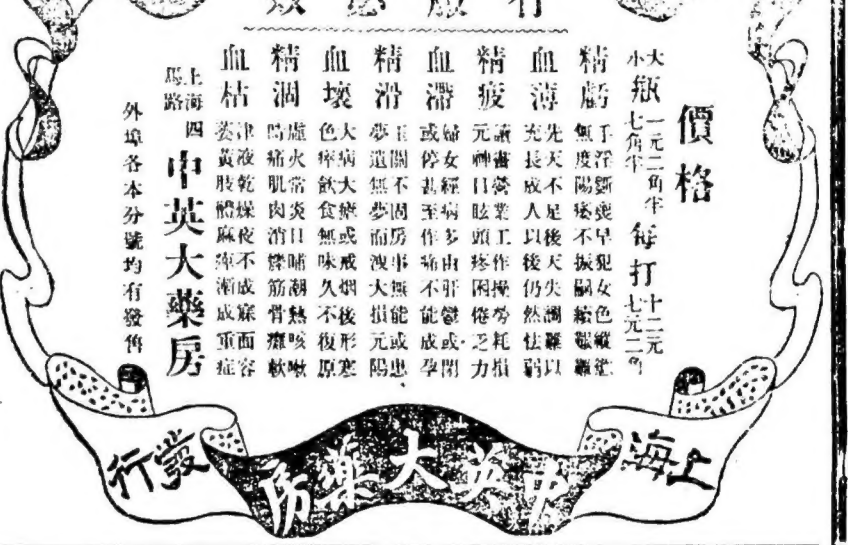 價格
大瓶一元二角半 每打十二元
小瓶七角半 每打七元二角
精虧 手淫斲喪早犯女色縱慾無度陽痿不振嗣續艱難
血薄 先天不足後天失調難以充長成人以後仍然怯弱
精疲 讀書營業工作操勞耗損元神目眩頭疼困倦乏力
血滯 婦女經病多由肝鬱或閉或停甚至作痛不能成孕
精滑 玉關不固房事無能或患夢遺無夢而洩大損元陽
血壞 大病大瘧或戒烟後形寒色瘁飲食無味久不復原
精涸 虛火常炎日晡潮熱咳嗽時痛肌肉消爍筋骨癱軟
血枯 津液乾燥夜不成寐面容萎黃肢體麻痺漸成重症
上海四馬路 中英大藥房
外埠各本分號均有發售
上海
中英大藥房
發行